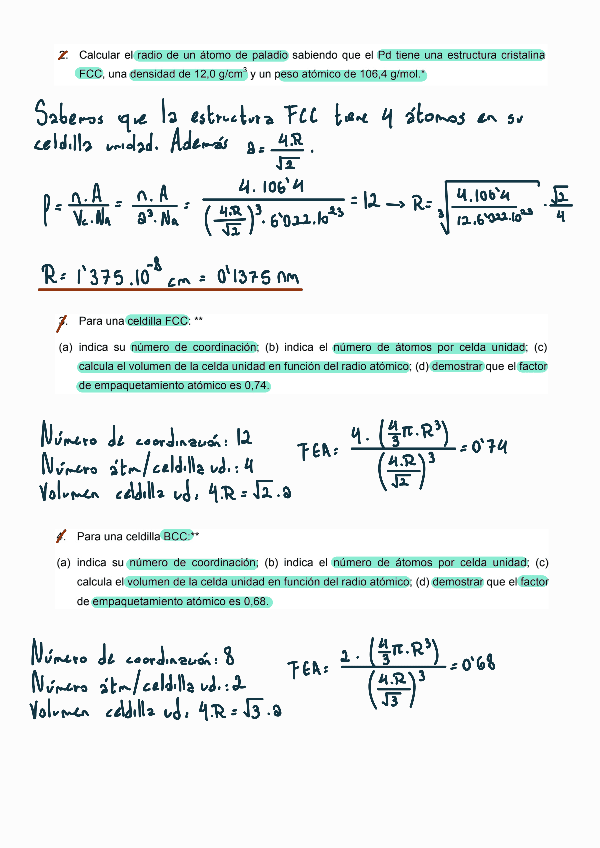 2. Calcular el radio de un átomo de paladio sabiendo que el Pd tiene una estructura cristalina
FCC, una densidad de 12,0 g/cm³ y un peso atómico de 106,4 g/mol.*
Sabemos que la estructura FCC tiene 4 átomos en su
celdilla unidad. Además a = 4.R/√2 .
ρ = n.A/Vc.Na = n.A/a³.Na = 4.106'4/(4.R/√2)³.6'022.10²³ = 12 → R = ∛(4.106'4/12.6'022.10²³) . √2/4
R = 1'375.10⁻⁸ cm = 0'1375 nm
3. Para una celdilla FCC: **
(a) indica su número de coordinación; (b) indica el número de átomos por celda unidad; (c)
calcula el volumen de la celda unidad en función del radio atómico; (d) demostrar que el factor
de empaquetamiento atómico es 0,74.
Número de coordinación: 12
Número átm/celdilla ud.: 4
Volumen celdilla ud: 4.R = √2 . a
FEA = 4.(4/3 π.R³)/(4.R/√2)³ = 0'74
4. Para una celdilla BCC:**
(a) indica su número de coordinación; (b) indica el número de átomos por celda unidad; (c)
calcula el volumen de la celda unidad en función del radio atómico; (d) demostrar que el factor
de empaquetamiento atómico es 0,68.
Número de coordinación: 8
Número átm/celdilla ud.: 2
Volumen celdilla ud: 4.R = √3 . a
FEA = 2.(4/3 π.R³)/(4.R/√3)³ = 0'68